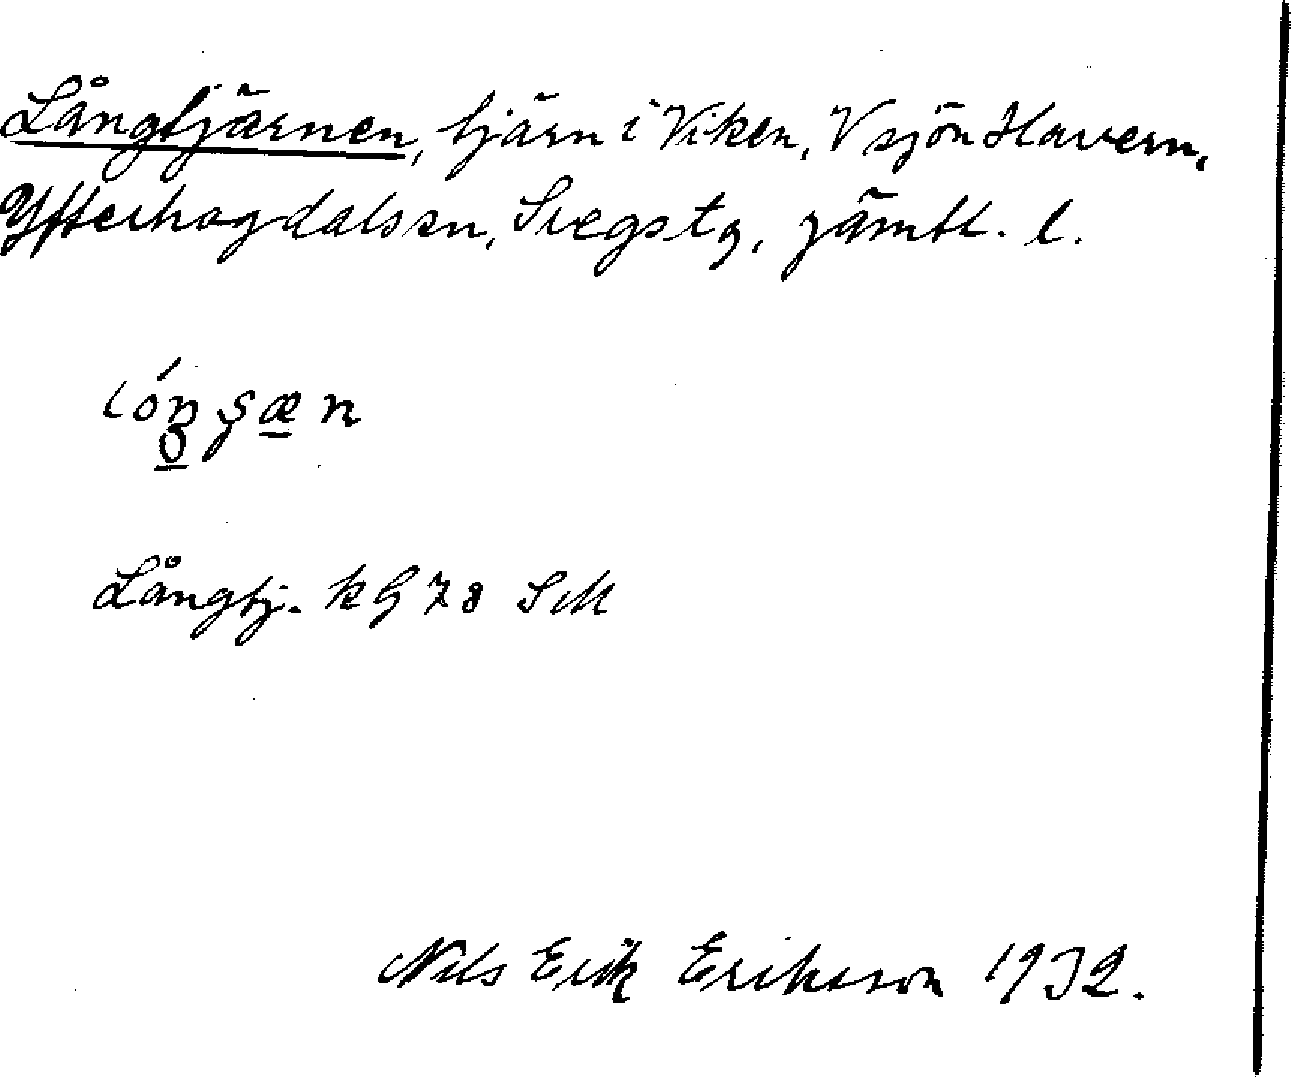 Långtjärnen, tjärn i Viken, V sjön Havern,
Ytterhogdals sn, Svegs tg, Jämtl. l.
Långtj. kG 78 SM
Nils Erik Eriksson 1932.